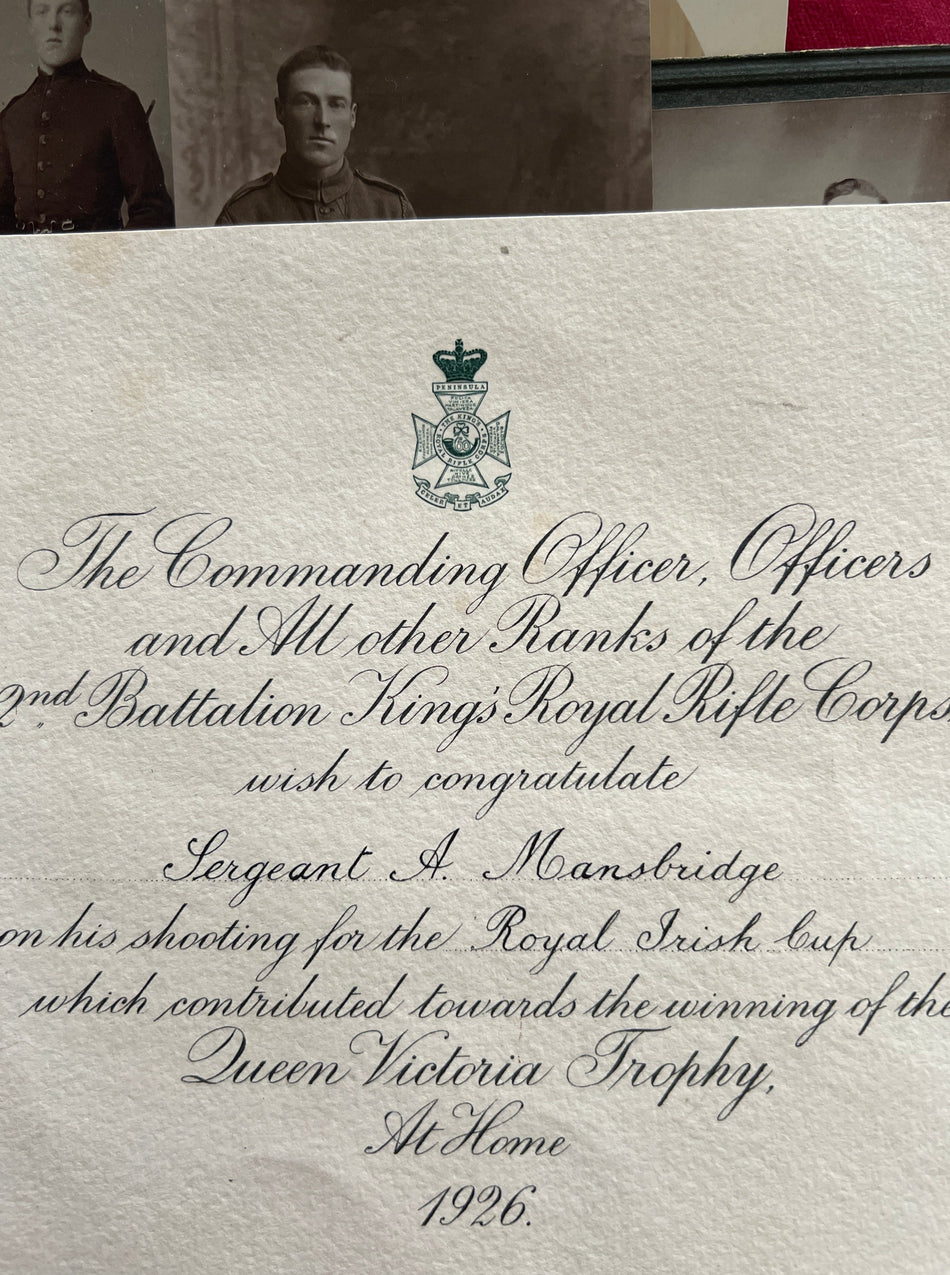 PENINSULA
THE KING'S ROYAL RIFLE CORPS
60
CELER ET AUDAX
The Commanding Officer, Officers
and All other Ranks of the
2nd Battalion King's Royal Rifle Corps
wish to congratulate
Sergeant A. Mansbridge
on his shooting for the Royal Irish Cup
which contributed towards the winning of the
Queen Victoria Trophy,
At Home
1926.